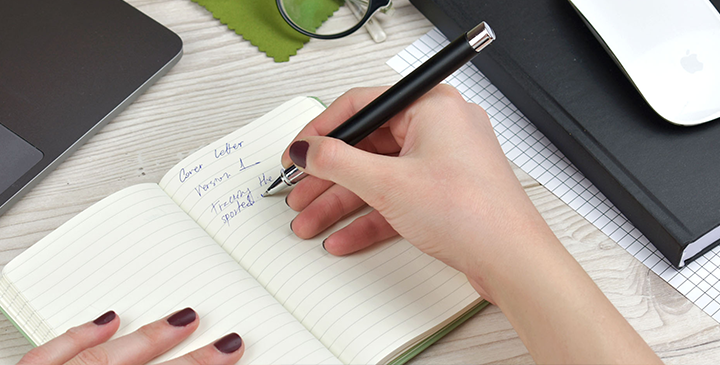 Cover Letter
Version 1
Tracking the
spotted